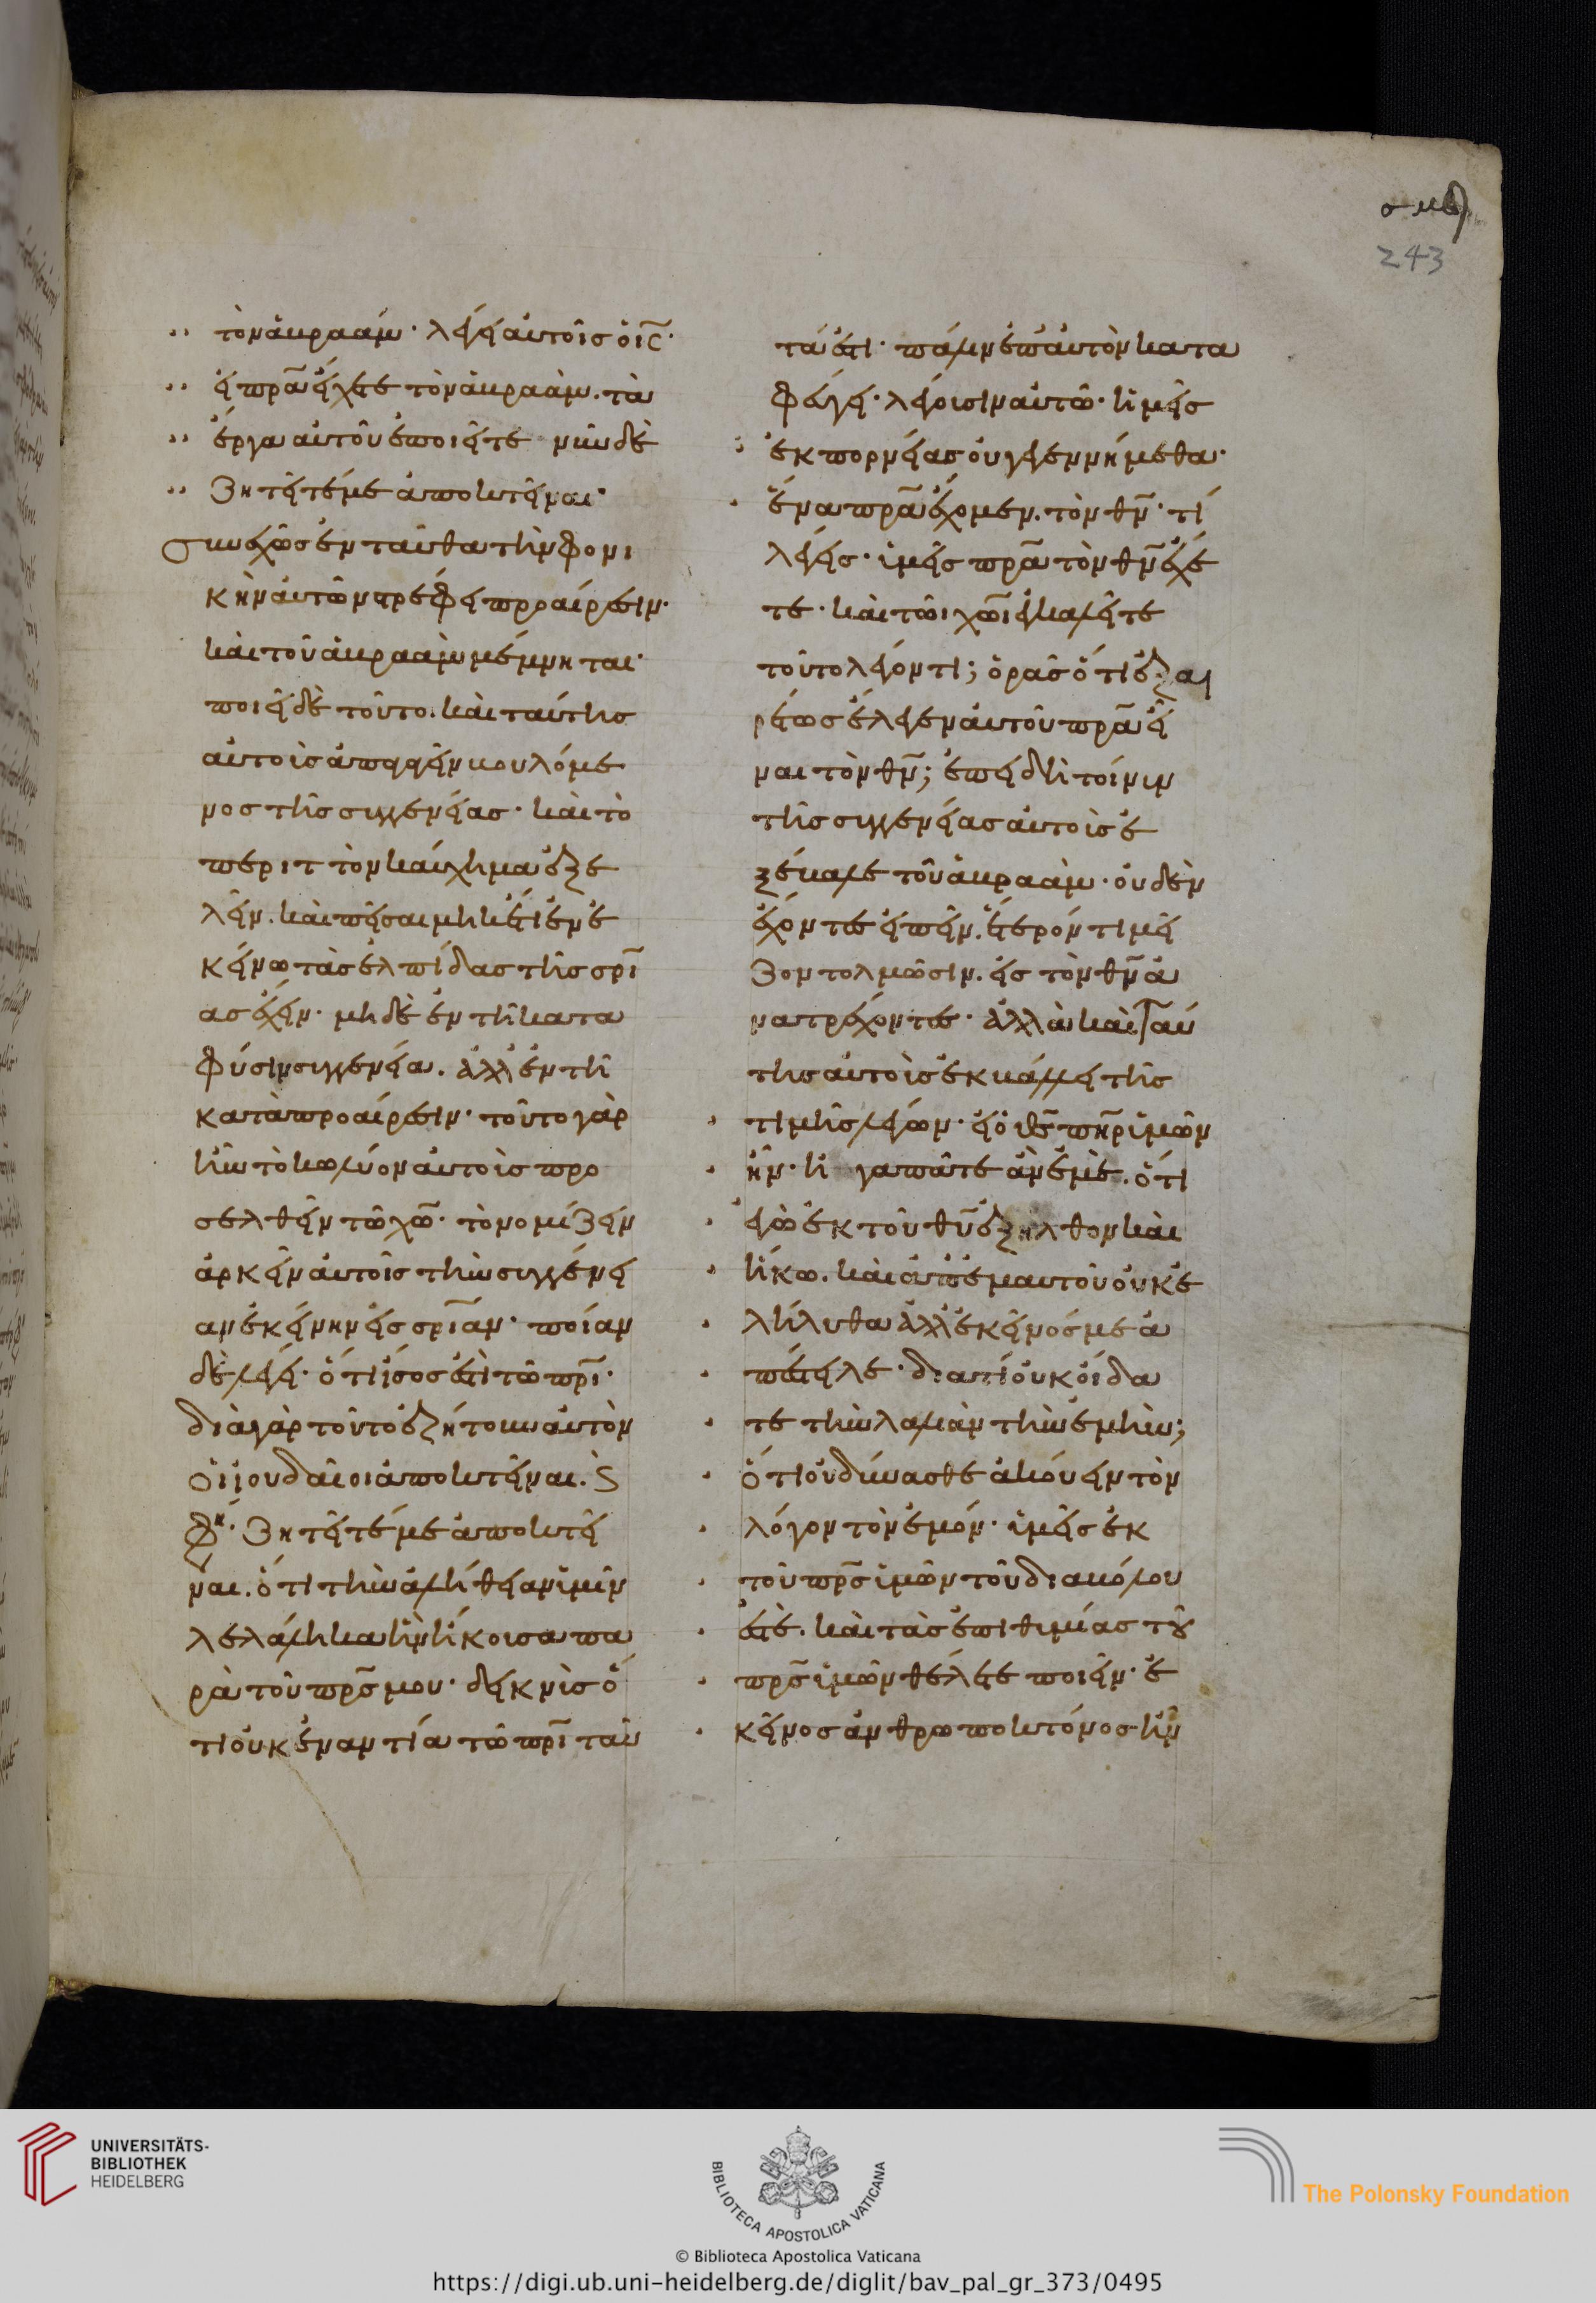 σμγ
243
τὸν ἀβραάμ· λέγει αὐτοῖς ὁ ις·
εἰ πρα εἴχετε τὸν ἀβραὰμ. τὰ
ἔργα αὐτοῦ ἐποιεῖτε νῦν δὲ
ζητεῖτέ με ἀποκτεῖναι·
συνεχῶς ἐνταῦθα τὴν φονι
κὴν αὐτῶν στρέφει προαίρεσιν·
καὶ τοῦ ἀβραὰμ μέμνηται·
ποιεῖ δὲ τοῦτο. καὶ ταύτης
αὐτοὺς ἀπαγαγεῖν βουλόμε
νος τῆς συγγενείας· καὶ τὸ
περιττὸν καύχημα ἐξε
λεῖν. καὶ πεῖσαι μηκέτι ἐν ἐ
κείνω τὰς ἐλπίδας τῆς σρι
ας ἔχειν· μηδὲ ἐν τῆ κατα
φύσιν συγγενεία. ἀλλ' ἐν τῆ
κατὰ προαίρεσιν· τοῦτο γὰρ
ἦν τὸ κωλύον αὐτοὺς προ
σελθεῖν τῶ χω· τὸ νομίζειν
ἀρκεῖν αὐτοῖς τὴν συγγένει
αν ἐκείνην εἰς σριαν· ποίαν
δὲ λέγει· ὅτι ἴσος ἐστὶ τῶ πρι·
διὰ γὰρ τοῦτο ἐζήτουν αὐτὸν
οἱ ἰουδαῖοι ἀποκτεῖναι. καὶ
φη· ζητεῖτέ με ἀποκτεῖ
ναι. ὅτι τὴν ἀλήθειαν ὑμῖν
λελάληκα ἣν ἤκουσα πα
ρὰ τοῦ πρς μου· δεικνὺς ὅ
τι οὐκ ἐναντία τῶ πρι ταῦ
τά ἐστι· πάλιν ἐπ' αὐτὸν κατα
φεύγει· λέγουσιν αὐτῶ· ἡμεῖς
ἐκ πορνείας οὐ γεγεννήμεθα·
ἕνα πρα ἔχομεν. τὸν θν· τί
λέγεις· ὑμεῖς πρα τὸν θν ἔχε
τε· καὶ τῶι χωι ἐγκαλεῖτε
τοῦτο λέγοντι; ὁρᾶς ὅτι ἐξαι
ρέτως ἔλεγεν αὐτοῦ πρα εἶ
ναι τὸν θν; ἐπειδὴ τοίνυν
τῆς συγγενείας αὐτοὺς ἐ
ξέβαλε τοῦ ἀβραὰμ· οὐδὲν
ἔχοντες εἰπεῖν. ἕτερόν τι μεῖ
ζον τολμῶσιν. εἰς τὸν θν ἀ
νατρέχοντες· ἀλλὰ καὶ ταύ
της αὐτοὺς ἐκβάλλει τῆς
τιμῆς λέγων· εἰ ὁ θς πηρ ὑμῶν
ἦν· ἠγαπᾶτε ἂν ἐμὲ. ὅτι
ἐγὼ ἐκ τοῦ θυ ἐξῆλθον καὶ
ἥκω. καὶ ἀπ' ἐμαυτοῦ οὐκ ἐ
λήλυθα ἀλλ' ἐκεῖνός με ἀ
πέστειλε· διατί οὐκ οἴδα
τε τὴν λαλιὰν τὴν ἐμὴν;
ὅτι οὐ δύνασθε ἀκούειν τὸν
λόγον τὸν ἐμόν· ὑμεῖς ἐκ
τοῦ πρς ὑμῶν τοῦ διαβόλου
ἐστὲ. καὶ τὰς ἐπιθυμίας τοῦ
πρς ὑμῶν θέλετε ποιεῖν· ἐ
κεῖνος ἀνθρωποκτόνος ἦν
UNIVERSITÄTS-
BIBLIOTHEK
HEIDELBERG
BIBLIOTECA APOSTOLICA VATICANA
The Polonsky Foundation
© Biblioteca Apostolica Vaticana
https://digi.ub.uni-heidelberg.de/diglit/bav_pal_gr_373/0495